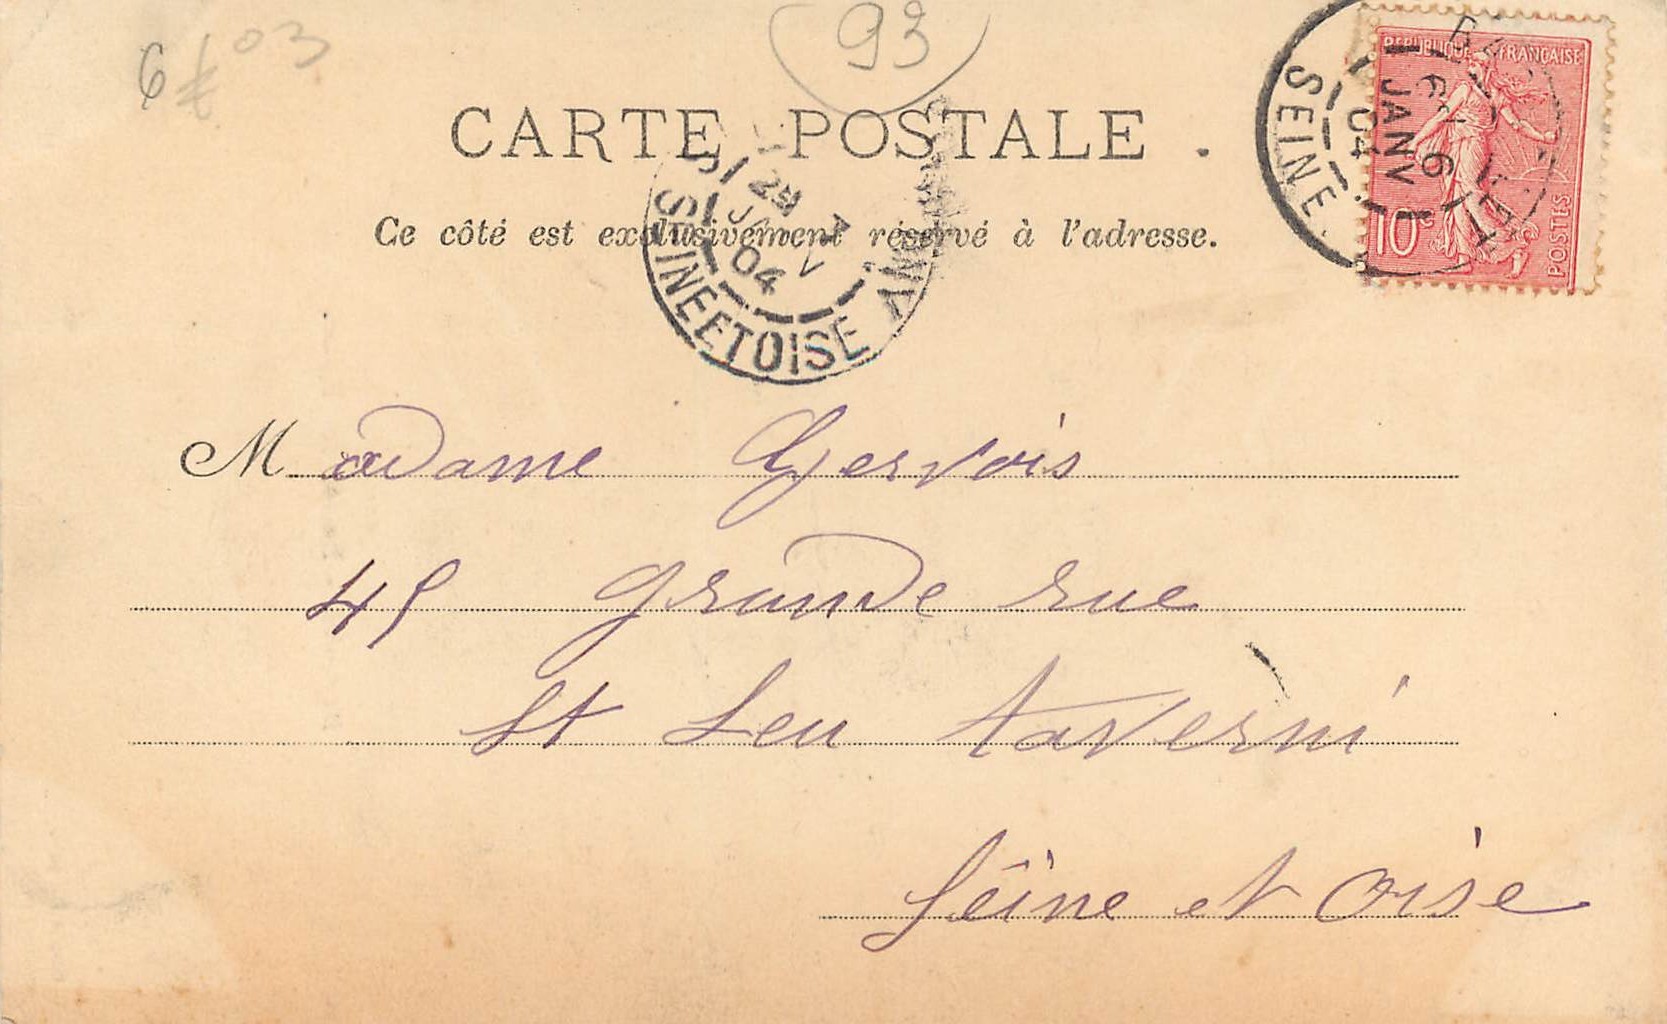 6 € 03
93
CARTE POSTALE
Ce côté est exclusivement réservé à l'adresse.
REPUBLIQUE FRANÇAISE
10c
POSTES
6
JANV
04
SEINE
29
JANV
04
SEINE ET OISE
Madame Gervois
45 grande rue
St Leu taverni
Seine et Oise